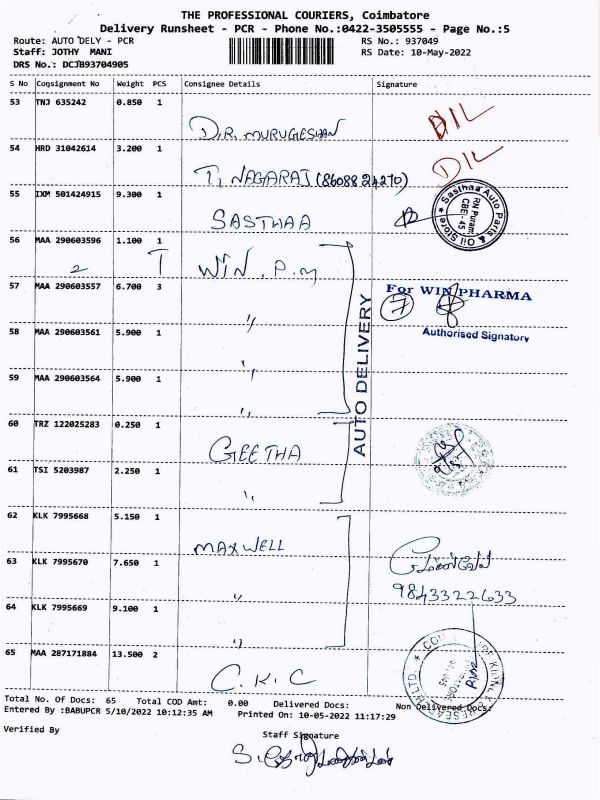 THE PROFESSIONAL COURIERS, Coimbatore
Delivery Runsheet - PCR - Phone No.:0422-3505555 - Page No.:5
Route: AUTO DELY - PCR RS No.: 937049
Staff: JOTHY MANI RS Date: 10-May-2022
DRS No.: DCJB93704905
S No Consignment No Weight PCS Consignee Details Signature
53 TNJ 635242 0.850 1
D.R. MURUGESHAN
54 HRD 31042614 3.200 1
T. NAGARAJ (8608824270) DIL
55 IXM 501424915 9.300 1
SASTHAA
Sasthaa Auto Parts & Oil Store
RN Puram
CBE-45
56 MAA 290603596 1.100 1
2 T WIN. P.M
57 MAA 290603557 6.700 3
For WIN PHARMA
7
Authorised Signatory
"
58 MAA 290603561 5.900 1
"
59 MAA 290603564 5.900 1
"
AUTO DELIVERY
60 TRZ 122025283 0.250 1
GEETHA
61 TSI 5203987 2.250 1
"
62 KLK 7995668 5.150 1
MAXWELL
63 KLK 7995670 7.650 1
"
9843322633
64 KLK 7995669 9.100 1
"
65 MAA 287171884 13.500 2
C.K.C
Total No. Of Docs: 65 Total COD Amt: 0.00 Delivered Docs: Non Delivered Docs:
Entered By :BABUPCR 5/10/2022 10:12:35 AM Printed On: 10-05-2022 11:17:29
Verified By Staff Signature